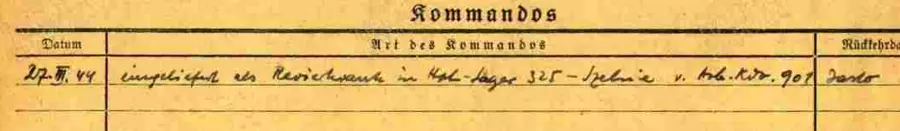 Kommandos
Datum Art des Kommandos Rückkehrda
27. III. 44 eingeliefert als Revierkrank in Hptr-Lager 325 – v. Arb. Kdo. 901 Jaslo